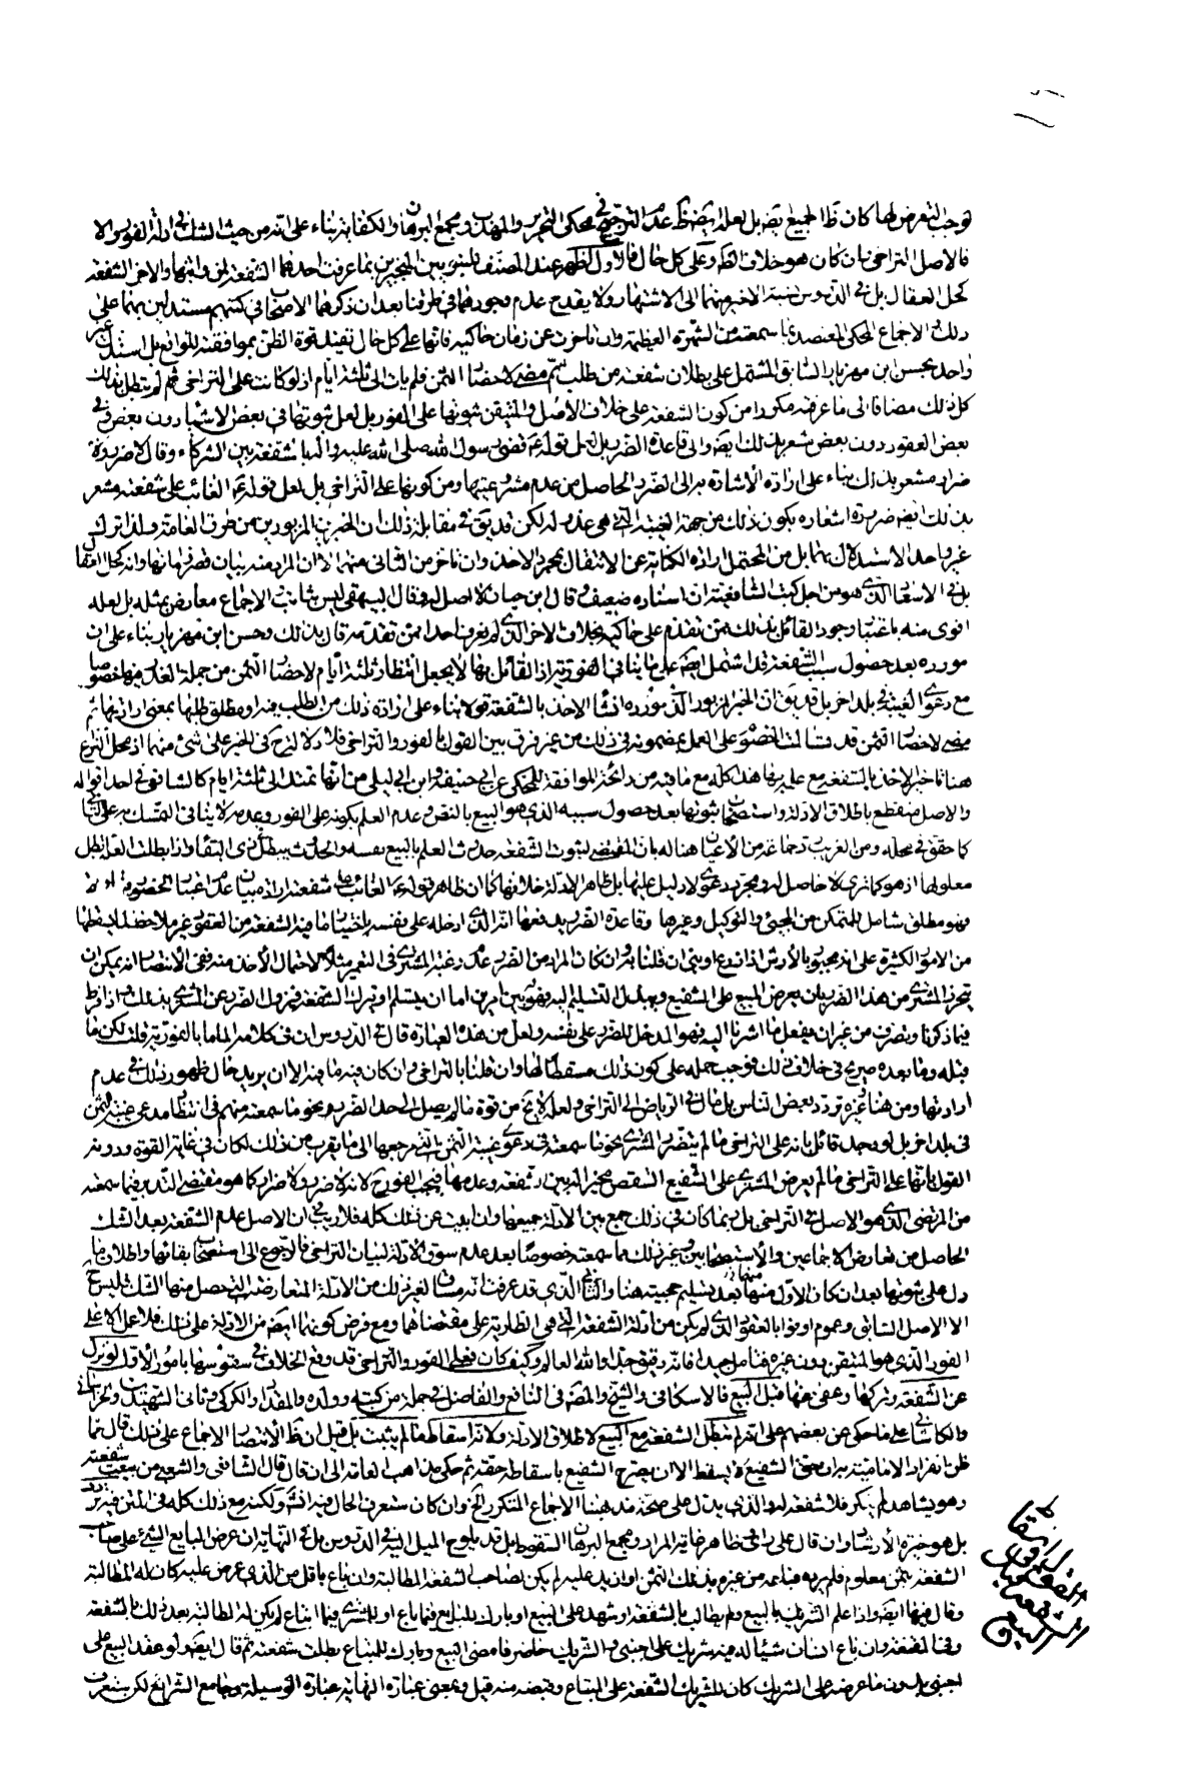 توجب التعرض لها كان ظ الجميع ايضا بل لعله ايضا ظ عدم الترجيح في محكي التحرير والمهذب ومجمع البرهان والكفاية بناء على انه من حيث الشك في ادلة الفور والا
فالاصل التراخي وان كان هو خلاف الظ وعلى كل حال فالاول اظهر عند المصنف للنبويين المنجبرين بما عرفت احدهما الشفعة لمن واثبها والاخر الشفعة
كحل العقال بل في الدروس نسبة الاخير منهما الى الاشتهار ولا يقدح عدم وجودهما في طرقنا بعد ان ذكرهما الاصحاب في كتبهم مستدلين بهما على
ذلك الاجماع المحكي المعتضد بما سمعت من الشهرة العظيمة وان تاخرت عن زمان حاكيه فانها على كل حال تفيد قوة الظن بموافقته للواقع بل استدل غير
واحد بحسن ابن مهزيار السابق المشتمل على بطلان شفعة من طلب ثم مضى لاحضار الثمن فلم يات الى ثلثة ايام اذ لو كانت على التراخي لم تبطل بذلك
كل ذلك مضافا الى ما عرفته مكررا من كون الشفعة على خلاف الاصل والمتيقن ثبوتها على الفور بل لعل ثبوتها في بعض الاشياء دون بعض وفي
بعض العقود دون بعض مشعر بذلك ايضا والى قاعدة الضرر بل لعل قوله ع قضى رسول الله صلى الله عليه واله بالشفعة بين الشركاء وقال لا ضرر ولا
ضرار مشعر بذلك بناء على ارادة الاشارة به الى الضرر الحاصل من عدم مشروعيتها ومن كونها على التراخي بل لعل قوله ع الغائب على شفعته مشعر
بذلك ايضا ضرورة اشعاره بكون ذلك من جهة الغيبة التي هي عذر له لكن قد يق في مقابلة ذلك ان الخبرين المزبورين من طرق العامة ولذا ترك
غير واحد الاستدلال بهما بل من المحتمل ارادة الكناية عن الانتقال بمجرد الاخذ وان تاخر من الثاني منهما لا ان المراد منه بيان قصر زمانها وانه كحل العقال
بل في الاسعاد الذي هو من اجل كتب الشافعية ان اسناده ضعيف وقال ابن حبان لا اصل له وقال البيهقي ليس بثابت والاجماع معارض بمثله بل لعله
اقوى منه باعتبار وجود القائل بذلك ممن تقدم على حاكيه بخلاف الاخر الذي لم نعرف احدا ممن تقدمه قال بذلك وحسن ابن مهزيار بناء على ان
مورده بعد حصول سبب الشفعة قد اشتمل ايضا على ما ينافي الفورية اذ القائل بها لا يجعل انتظار ثلثة ايام لاحضار الثمن من جملة العذر فيها خصوصا
مع دعوى الغيبة في بلد اخر بل قد يق ان الخبر المزبور الذي مورده انشاء الاخذ بالشفعة قولا بناء على ارادة ذلك من الطلب فيه او مطلق طلبها بمعنى ارادتها ثم
مضى لاحضار الثمن قد تسالمت الخصوم على العمل بمضمونه في ذلك من غير فرق بين القول بالفور والتراخي فلا دلالة ح في الخبر على شئ منهما اذ محل النزاع
هنا تاخير الاخذ بالشفعة مع علمه بها هذا كله مع ما فيه من رائحة الموافقة للمحكي عن ابي حنيفة وابن ابي ليلى من انها تمتد الى ثلثة ايام كالشافعي في احد اقواله
والاصل منقطع باطلاق الادلة واستصحاب ثبوتها بعد حصول سببه الذي هو البيع بالنص وعدم العلم بكونه على الفور وعدمه لا ينافي التمسك به على البقاء
كما حقق في محله ومن الغريب دعوى غير واحد من الاعيان هنا له بان المقتضي لثبوت الشفعة حدوث العلم بالبيع نفسه والحادث يبطل في ثاني البقاء واذا بطلت العلة بطل
معلولها اذ هو كما ترى لا حاصل له ومجرد دعوى لا دليل عليها بل ظاهر الادلة خلافها كما ان ظاهر قوله ع الغائب على شفعته ارادة بيان عدم اعتبار الحضور فيها
وهو مطلق شامل للمتمكن من المجئ والتوكيل وغيرها وقاعدة الضرر يدفعها انه الذي ادخله على نفسه باختياره ما فيه الشفعة من العقود غير ملاحظ لاسقاطها
من الامور الكثيرة على انه مجبور بالارش اذا قلع او بني ان قلنا به وان كان المراد من الضرر عدم رغبة المشتري في التعمير مثلا لاحتمال الاخذ منه ففي الانتصار انه يمكن ان
يتحرز المشتري من هذا الضرر بان يعرض المبيع على الشفيع ويبذل التسليم اليه فهو بين امرين اما ان يتسلم او يترك الشفعة فيزول الضرر عن المشتري بذلك واذا فرط
فيما ذكرنا وتصرف من غير ان يفعل ما اشرنا اليه فهو المدخل للضرر على نفسه ولعل من هذه العبارة قال في الدروس ان في كلامه الماما بالفورية قلت لكن ما
قبله وما بعده صريح في خلاف ذلك فوجب حمله على كون ذلك مسقطا لها وان قلنا بالتراخي وان كان فيه ما فيه الا ان يريد حال ظهور ذلك في عدم
ارادتها ومن هنا وغيره تردد بعض الناس بل مال في الرياض الى التراخي ولعله لا يخ من قوة ما لم يصل الى حد الضرر بنحو ما سمعته منهم في انتظار مدعي غيبة الثمن
في بلد اخر بل لو وجد قائل بانه على التراخي ما لم يتضرر المشتري بنحو ما سمعته في دعوى غيبة الثمن بالتفريع جمعها الى ما يقرب من ذلك لكان في غاية القوة ودونه
القول بانها على التراخي ما لم يعرض المشتري على الشفيع الشقص مخيرا له بين شفعته وعدمها فيجب الفور ح لانه لا ضرر ولا ضرار كما هو مقتضى التدبر فيما سمعته
من المرتضى الذي هو الاصل في التراخي بل ربما كان في ذلك جمع بين الادلة جميعها وان ابيت عن ذلك كله فلا ريب في ان الاصل عدم الشفعة بعد الشك
الحاصل من تعارض الاجماعين والاستصحابين وغير ذلك مما سمعته خصوصا بعد عدم سوق الادلة لبيان التراخي فالرجوع الى استصحاب بقائها واطلاق ما
دل على ثبوتها بعد ان كان الاول منهما بعد تسليم حجيته هنا والثاني الذي قد عرفت انه مساق لغير ذلك من الادلة المتعارضة التي حصل منها الشك فليس ح
الا الاصل السابق وعموم اوفوا بالعقود الذي لم يكن من ادلة الشفعة التي هي الطارية على مقتضاهما ومع فرض كونهما ايضا من الادلة على ذلك فلا عمل الا على
الفور الذي هو المتيقن دون غيره فتامل جيدا فانه دقيق جدا والله العالم وكيف كان فعلى الفور والتراخي قد وقع الخلاف في سقوطها بامور الاول لو نزل
عن الشفعة وتركها وعفى عنها قبل البيع فالاسكافي والشيخ والمص في النافع والفاضل في جملة من كتبه وولده والمقداد والكركي وثاني الشهيدين والخراساني
والكاشاني على ما حكي عن بعضهم على انه لم تبطل الشفعة مع البيع لاطلاق الادلة ولانه اسقاط ما لم يثبت بل قيل ان ظ الانتصار الاجماع على ذلك قال مما
ظن انفراد الامامية به ان حق الشفيع لا يسقط الا ان يصرح الشفيع باسقاط حقه ثم حكى مذاهب العامة الى ان قال قال الشافعي والشعبي من بيعت شفعته
وهو شاهد لم ينكر فلا شفعة له والذي يدل على صحة مذهبنا الاجماع المتكرر الخ وان كان ستعرف الحال فيه انش ولكنه مع ذلك كله في المتن فيه تردد
بل هو خيرة الارشاد وان قال على راي ظاهر غاية المراد ومجمع البرهان السقوط بل قد يلوح الميل اليه في الدروس بل في النهاية ان عرض البايع الشئ على صاحب
الشفعة بثمن معلوم فلم يرده فباعه من غيره بذلك الثمن او ازيد عليه لم يكن لصاحب الشفعة المطالبة وان باع باقل من الذي عرض عليه كان له المطالبة
وقال فيها ايضا واذا علم الشريك بالبيع ولم يطالب بالشفعة او شهد على البيع او بارك للبايع فيما باع او للمشتري فيما ابتاع لم يكن له المطالبة بعد ذلك بالشفعة
وفي المقنعة وان باع انسان شيئا له فيه شريك على اجنبي والشريك حاضر فامضى البيع وبارك للمبتاع بطلت شفعته ثم قال ايضا ولو عقد البيع على
اجنبي بدون ما عرضه على الشريك كان للشريك الشفعة على المبتاع وقبضه منه قيل وبمعنى عبارة النهاية عبارة الوسيلة وجامع الشرايع لكن ستعرف